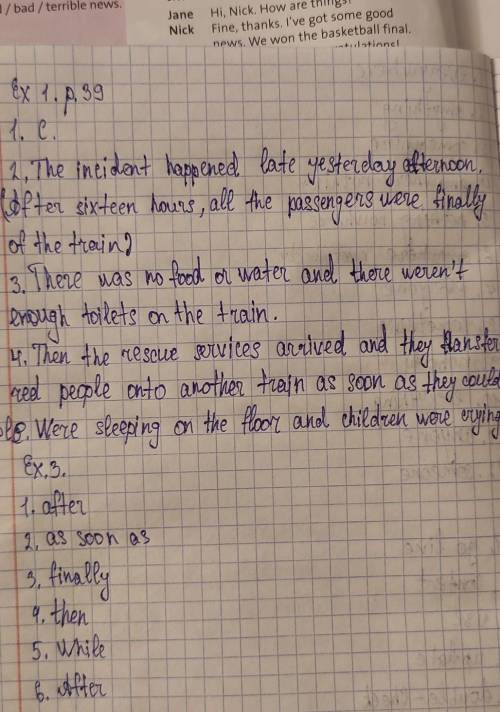 l / bad / terrible news.
Jane Hi, Nick. How are things?
Nick Fine, thanks. I've got some good
news. We won the basketball final.
Ex 1. p.39
1. C.
2. The incident happened late yesterday afternoon.
(After sixteen hours, all the passengers were finally
of the train)
3. There was no food or water and there weren't
enough toilets on the train.
4. Then the rescue services arrived and they transfer
red people onto another train as soon as they could
Were sleeping on the floor and children were crying
Ex. 3.
1. after
2. as soon as
3. finally
4. then
5. While
6. After